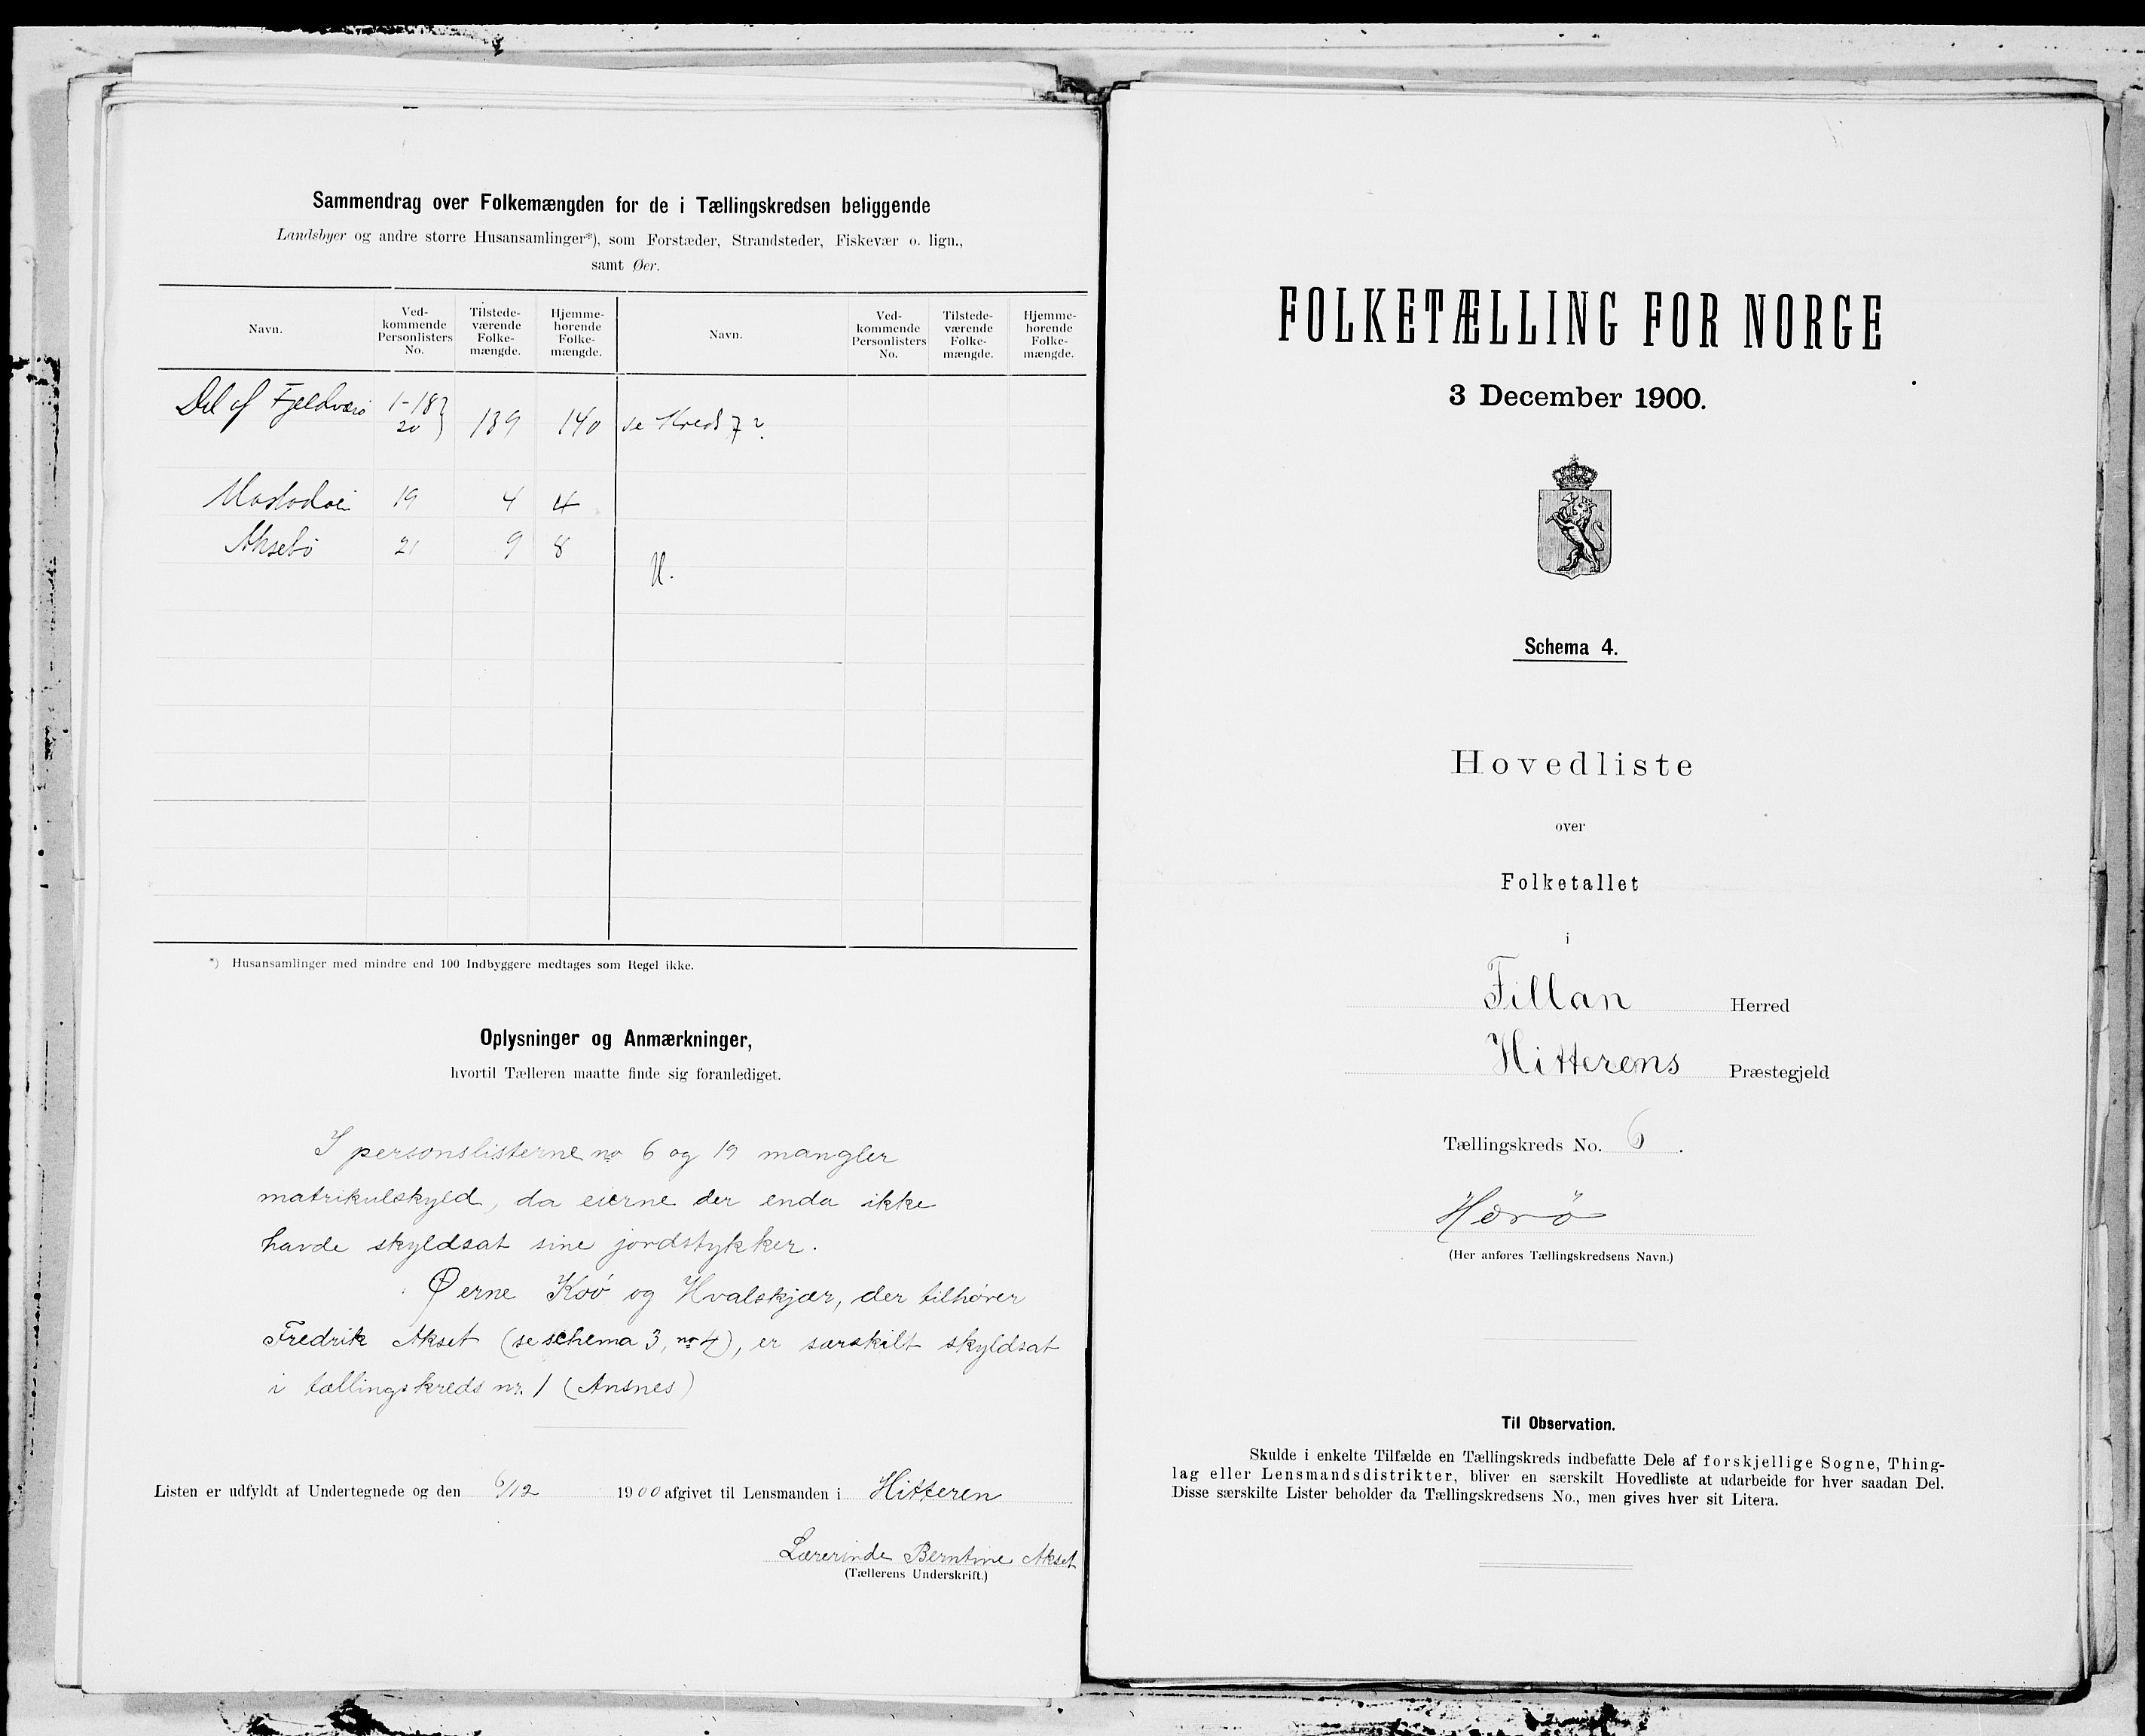 Sammendrag over Folkemængden for de i Tællingskredsen beliggende
Landsbyer og andre større Husansamlinger*), som Forstæder, Strandsteder, Fiskevær o. lign.,
samt Øer.
Navn. Ved-kommende Personlisters No. Tilstede-værende Folke-mængde. Hjemme-hørende Folke-mængde. Navn. Ved-kommende Personlisters No. Tilstede-værende Folke-mængde. Hjemme-hørende Folke-mængde.
Del af Fjeldværø 1-18 20 139 140 se Kreds 7?
19 4 4
Aksetø 21 9 8
*) Husansamlinger med mindre end 100 Indbyggere medtages som Regel ikke.
Oplysninger og Anmærkninger,
hvortil Tælleren maatte finde sig foranlediget.
I personslisterne no 6 og 19 mangler
matrikulskyld, da eierne der enda ikke
havde skyldsat sine jordstykker.
Øerne Koö og Hvalskjær, der tilhører
Fredrik Akset (se schema 3, no 4), er særskilt skyldsat
i tællingskreds nr. 1 (Ansnes)
Listen er udfyldt af Undertegnede og den 6/12 1900 afgivet til Lensmanden i Hitteren
Lærerinde Berntine Akset
(Tællerens Underskrift.)
FOLKETÆLLING FOR NORGE
3 December 1900.
Schema 4.
Hovedliste
over
Folketallet
i
Fillan Herred
Hitterens Præstegjeld
Tællingskreds No. 6.
Herö
(Her anføres Tællingskredsens Navn.)
Til Observation.
Skulde i enkelte Tilfælde en Tællingskreds indbefatte Dele af forskjellige Sogne, Thing-
lag eller Lensmandsdistrikter, bliver en særskilt Hovedliste at udarbeide for hver saadan Del.
Disse særskilte Lister beholder da Tællingskredsens No., men gives hver sit Litera.